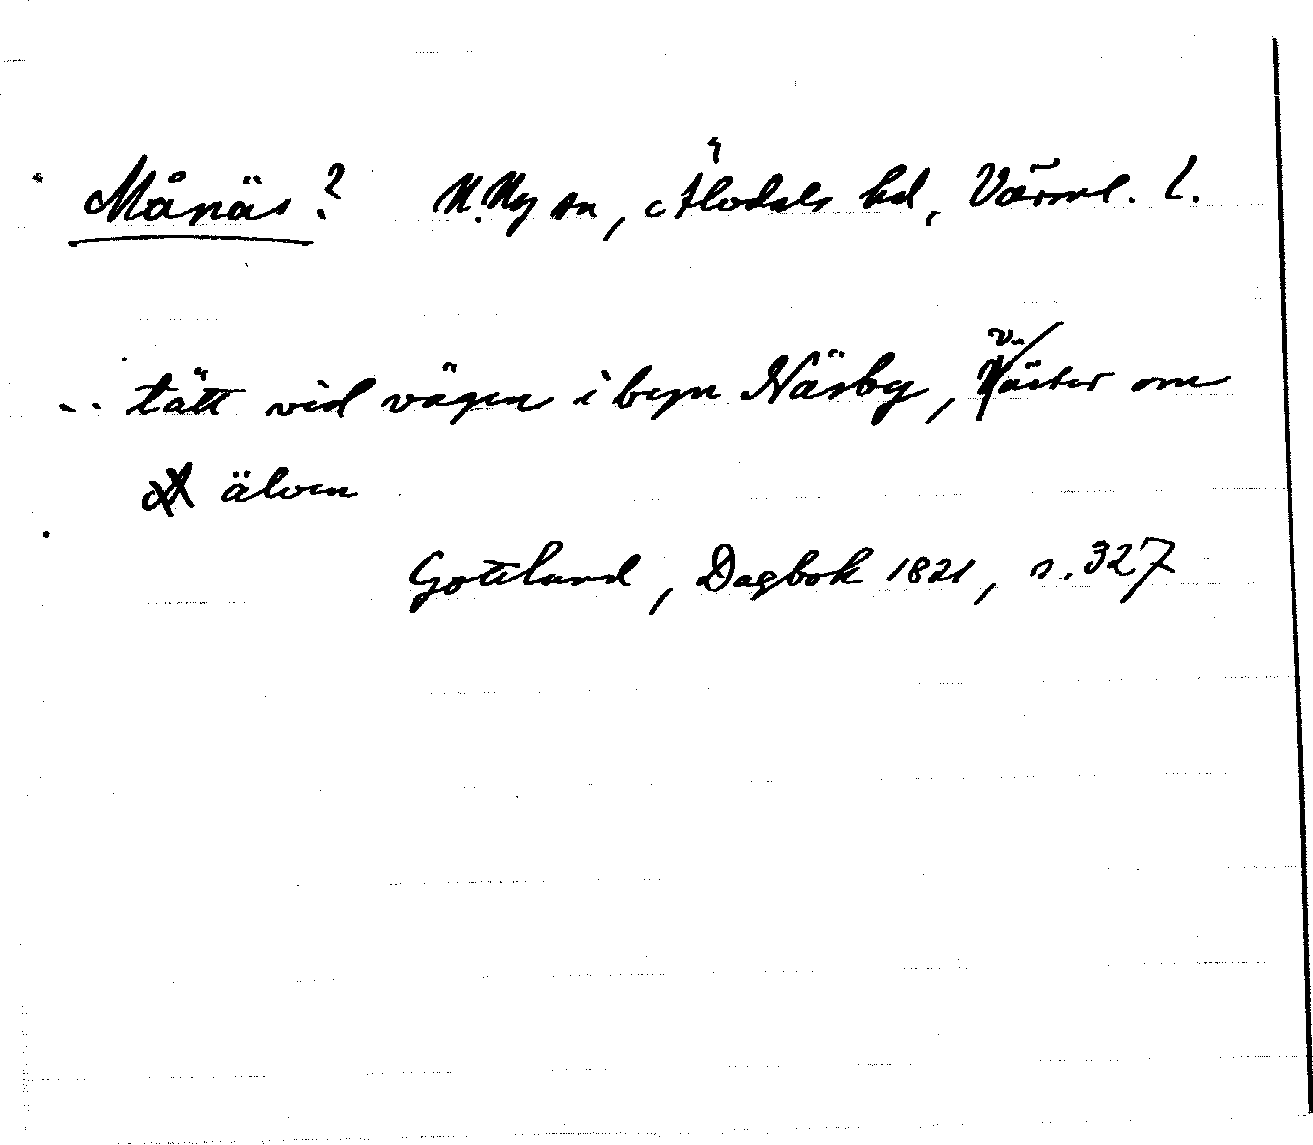 Månäs? N.Ny sn, Älvdals hd, Värml. l.
.. tätt vid vägen i byn Näsby, väster om
älven
Gottlund, Dagbok 1821, s. 327